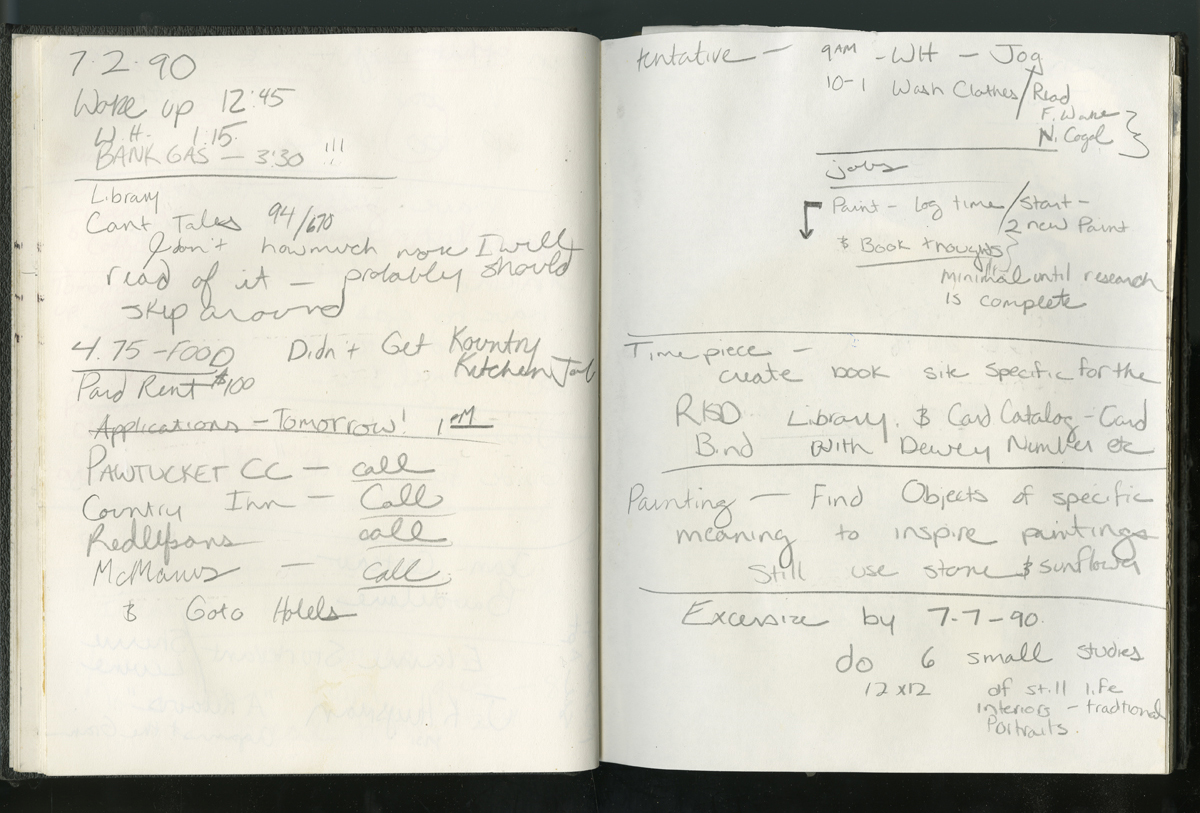 7.2.90
Wake up 12:45
W.H. 1:15
BANK GAS — 3:30 !!!
Library
Cant Tales 94/670
I don't how much more I will
read of it — probably should
skip around
4.75 - FOOD Didn't Get Kountry
Kitchen Job
Paid Rent $100
Applications — Tomorrow! 1 PM
PAWTUCKET CC — call
Country Inn — Call
call
McManus — call
& Goto Hotels
tentative — 9AM - WH — Jog
10-1 Wash Clothes / Read
F. Wake
N. Gogol
jobs
Paint - Log time / Start -
2 new Paint
& Book thoughts
minimal until research
is complete
Timepiece —
create book site specific for the
RISD Library. & Card Catalog - Card
Bind with Dewey Number etc
Painting — Find Objects of specific
meaning to inspire paintings
Still use stone & sunflower
Excersize by 7-7-90.
do 6 small studies
12x12 of still life
interiors - tradtional
Portraits.